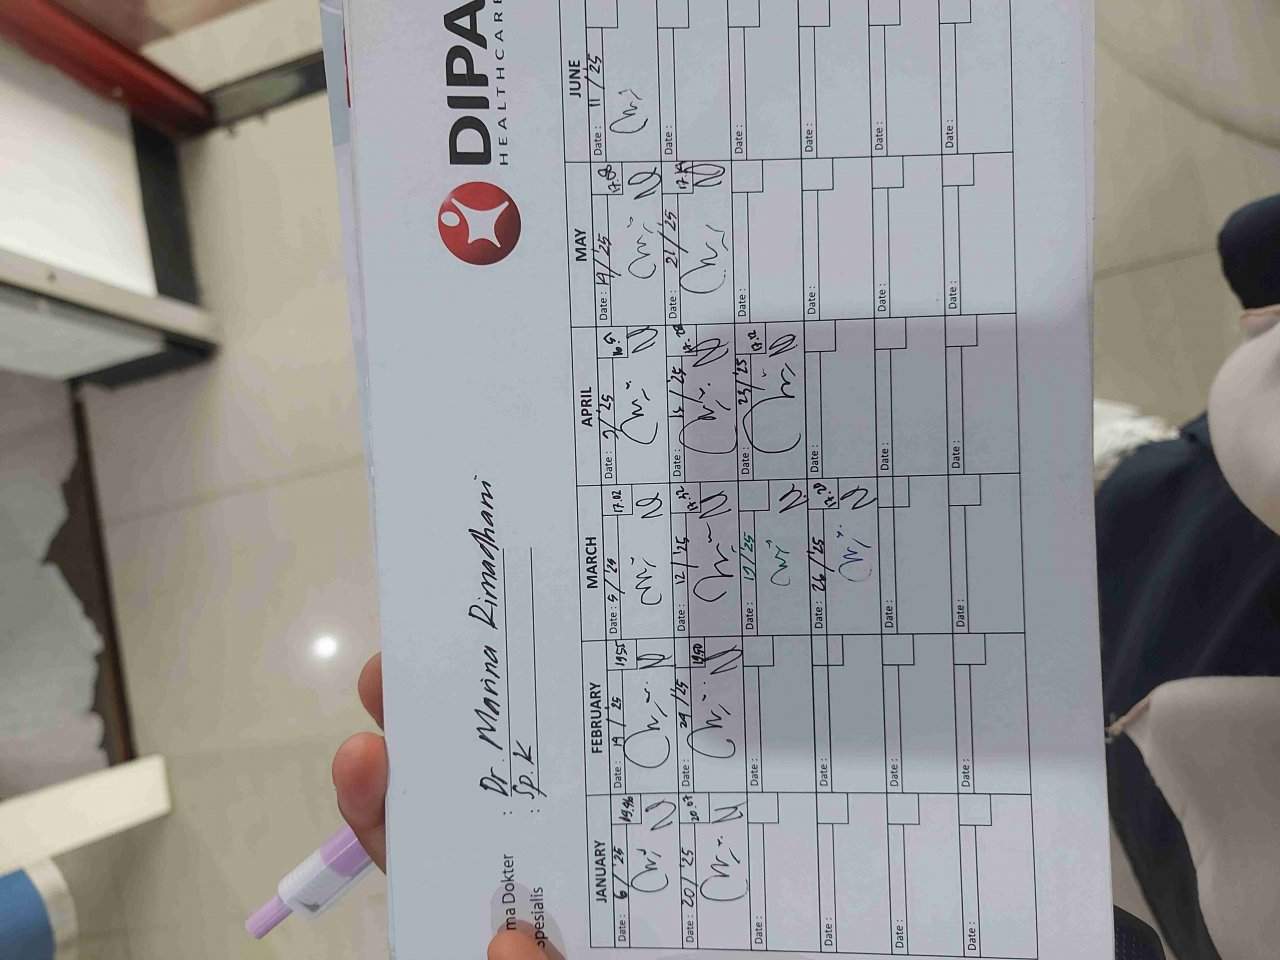 DIPA
HEALTHCARE
ma Dokter : Dr. Marina Rimadhani
Spesialis : Sp.K
JANUARY FEBRUARY MARCH APRIL MAY JUNE
Date : 6/'25 19.46 Date : 19/25 19.55 Date : 5/'25 17.02 Date : 2/'25 Date : 14/'25 17.08 Date : 11/'25
Date : 20/'25 20.07 Date : 24/25 19.50 Date : 12/'25 17.12 Date : 15/'25 Date : 21/'25 Date :
Date : Date : Date : 19/'25 Date : 23/'25 17.12 Date : Date :
Date : Date : Date : 26/'25 Date : Date : Date :
Date : Date : Date : Date : Date : Date :
Date : Date : Date : Date : Date : Date :